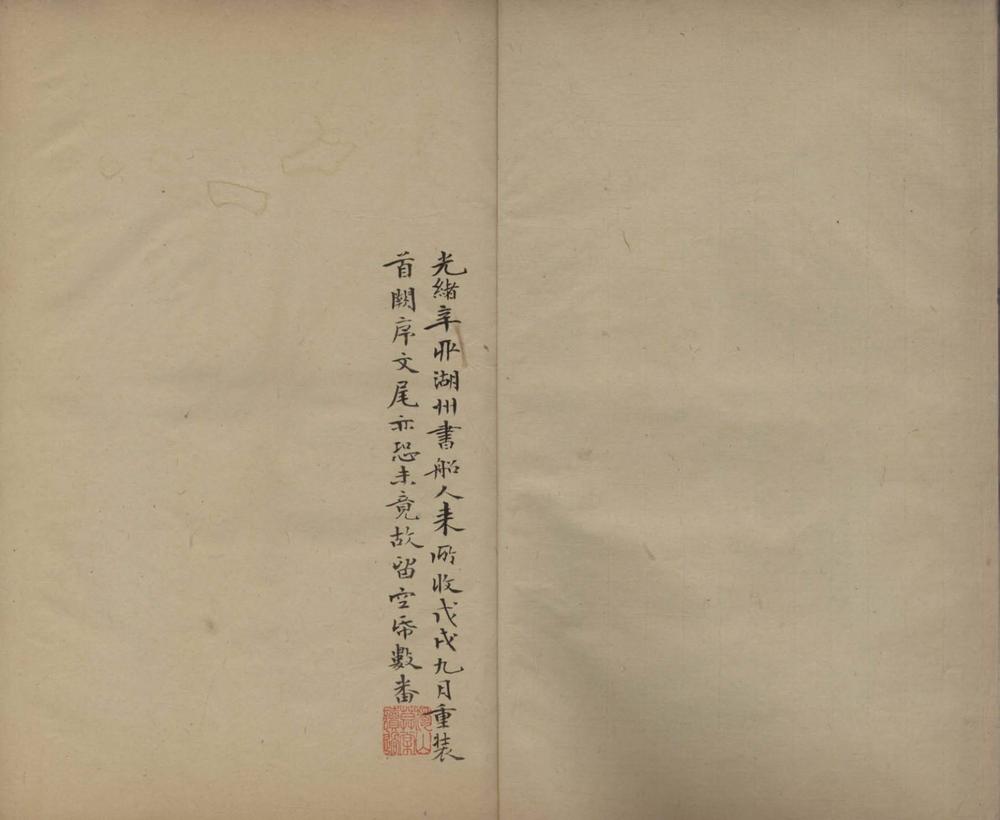 光緒辛卯湖州書船人來所收戊戌九月重裝
首闕序文尾亦恐未竟故留空帋數番